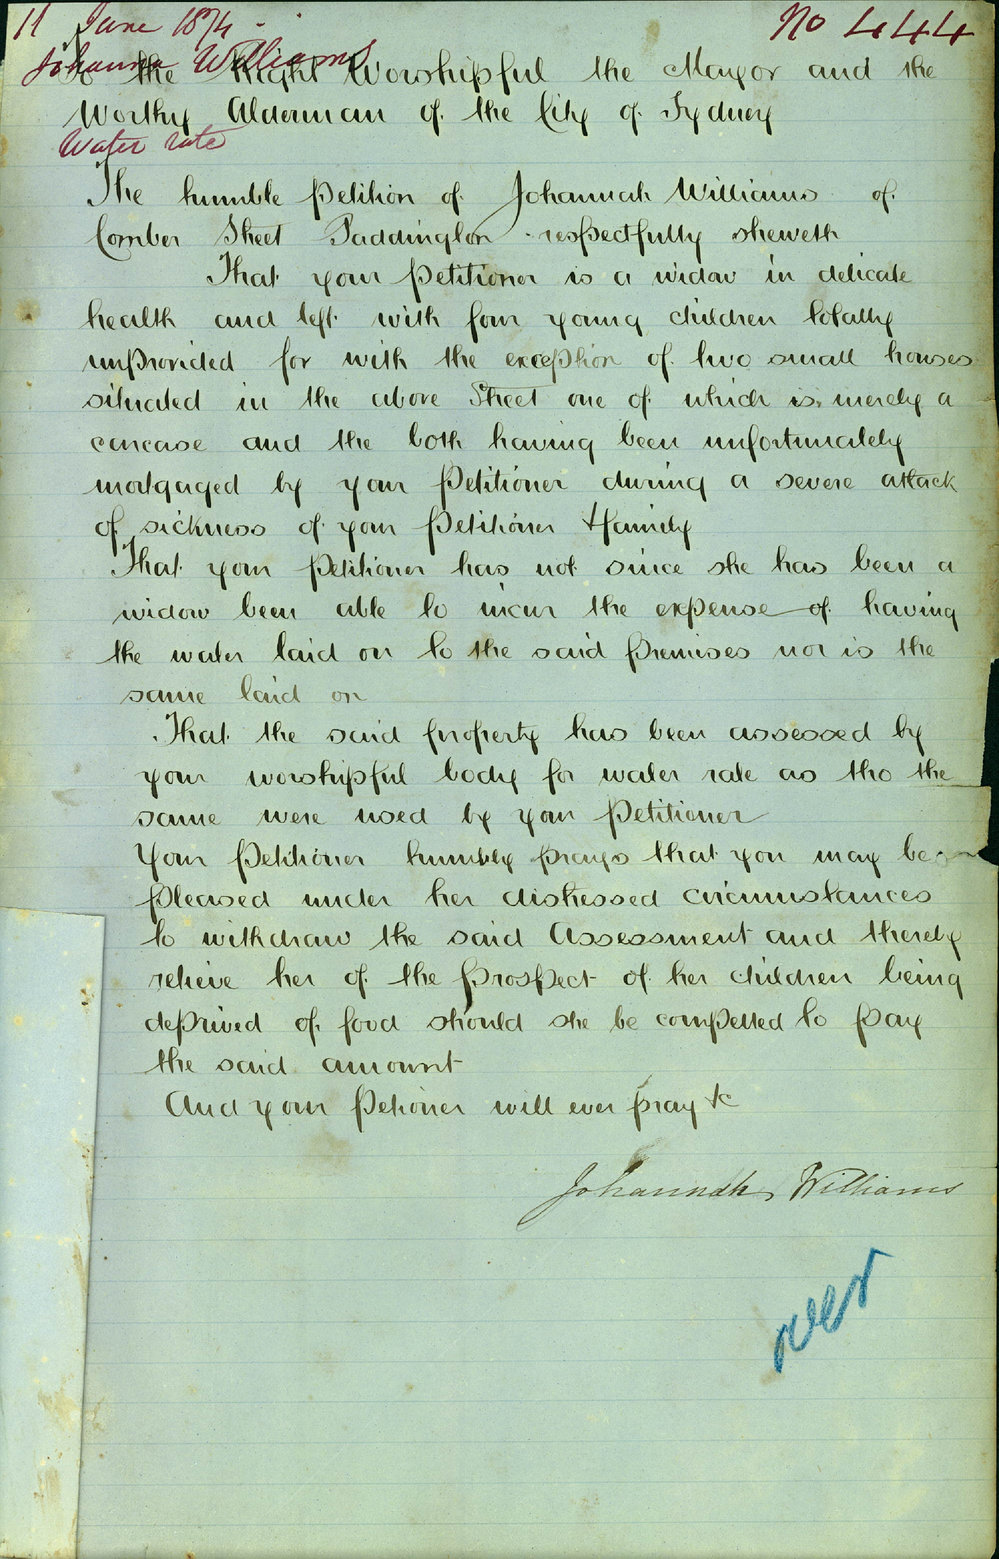 11 June 1874
No 444
Johanna Williams
To the Right Worshipful the Mayor and the
Worthy Alderman of the City of Sydney
Water rate
The humble Petition of Johannah Williams of
Comber Street Paddington respectfully sheweth
That your Petitioner is a widow in delicate
health and left with four young children totally
unprovided for with the exception of two small houses
situated in the above Street one of which is merely a
carcase and the both having been unfortunately
mortgaged by your Petitioner during a severe attack
of sickness of your Petitioner & family
That your Petitioner has not since she has been a
widow been able to incur the expense of having
the water laid on to the said premises nor is the
same laid on
That the said property has been assessed by
your worshipful body for water rate as tho the
same were used by your Petitioner
Your Petitioner humbly prays that you may be
pleased under her distressed circumstances
to withdraw the said Assessment and thereby
relieve her of the prospect of her children being
deprived of food should she be compelled to pay
the said amount
And your Petioner will ever pray &c
Johannah Williams
over